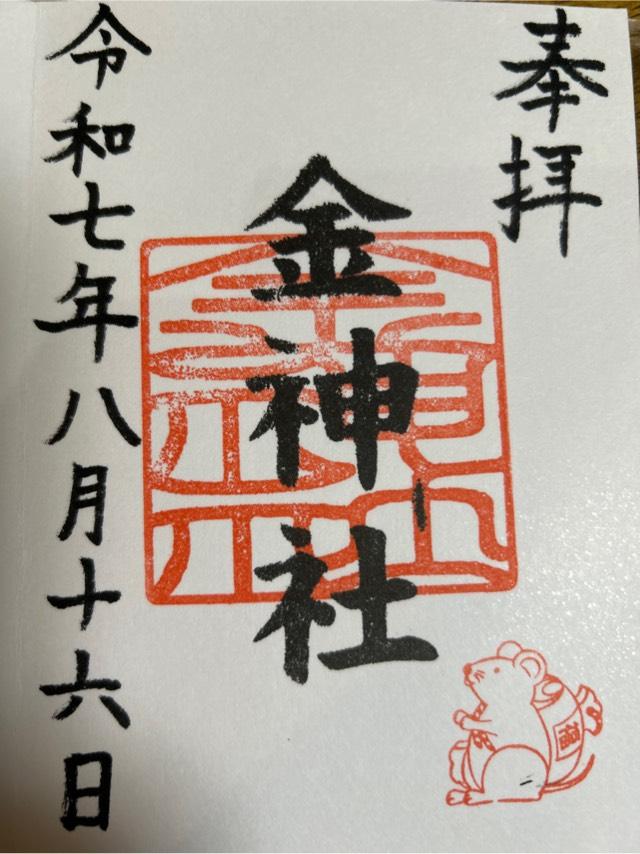 奉拝
金神社
令和七年八月十六日
福